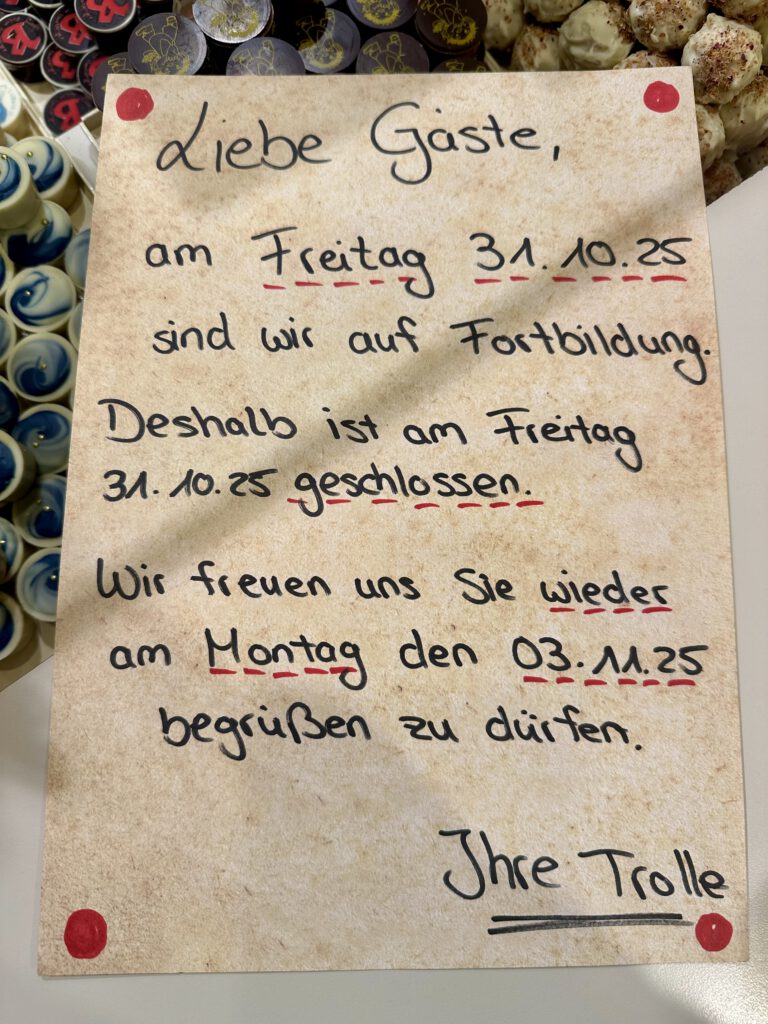 Liebe Gäste,
am Freitag 31.10.25
sind wir auf Fortbildung.
Deshalb ist am Freitag
31.10.25 geschlossen.
Wir freuen uns Sie wieder
am Montag den 03.11.25
begrüßen zu dürfen.
Ihre Trolle